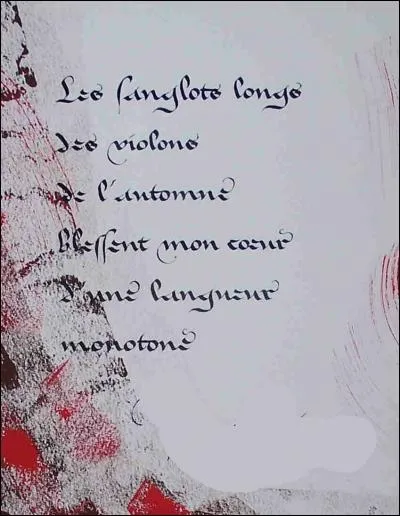 Les sanglots longs
des violons
de l'automne
blessent mon cœur
d'une langueur
monotone